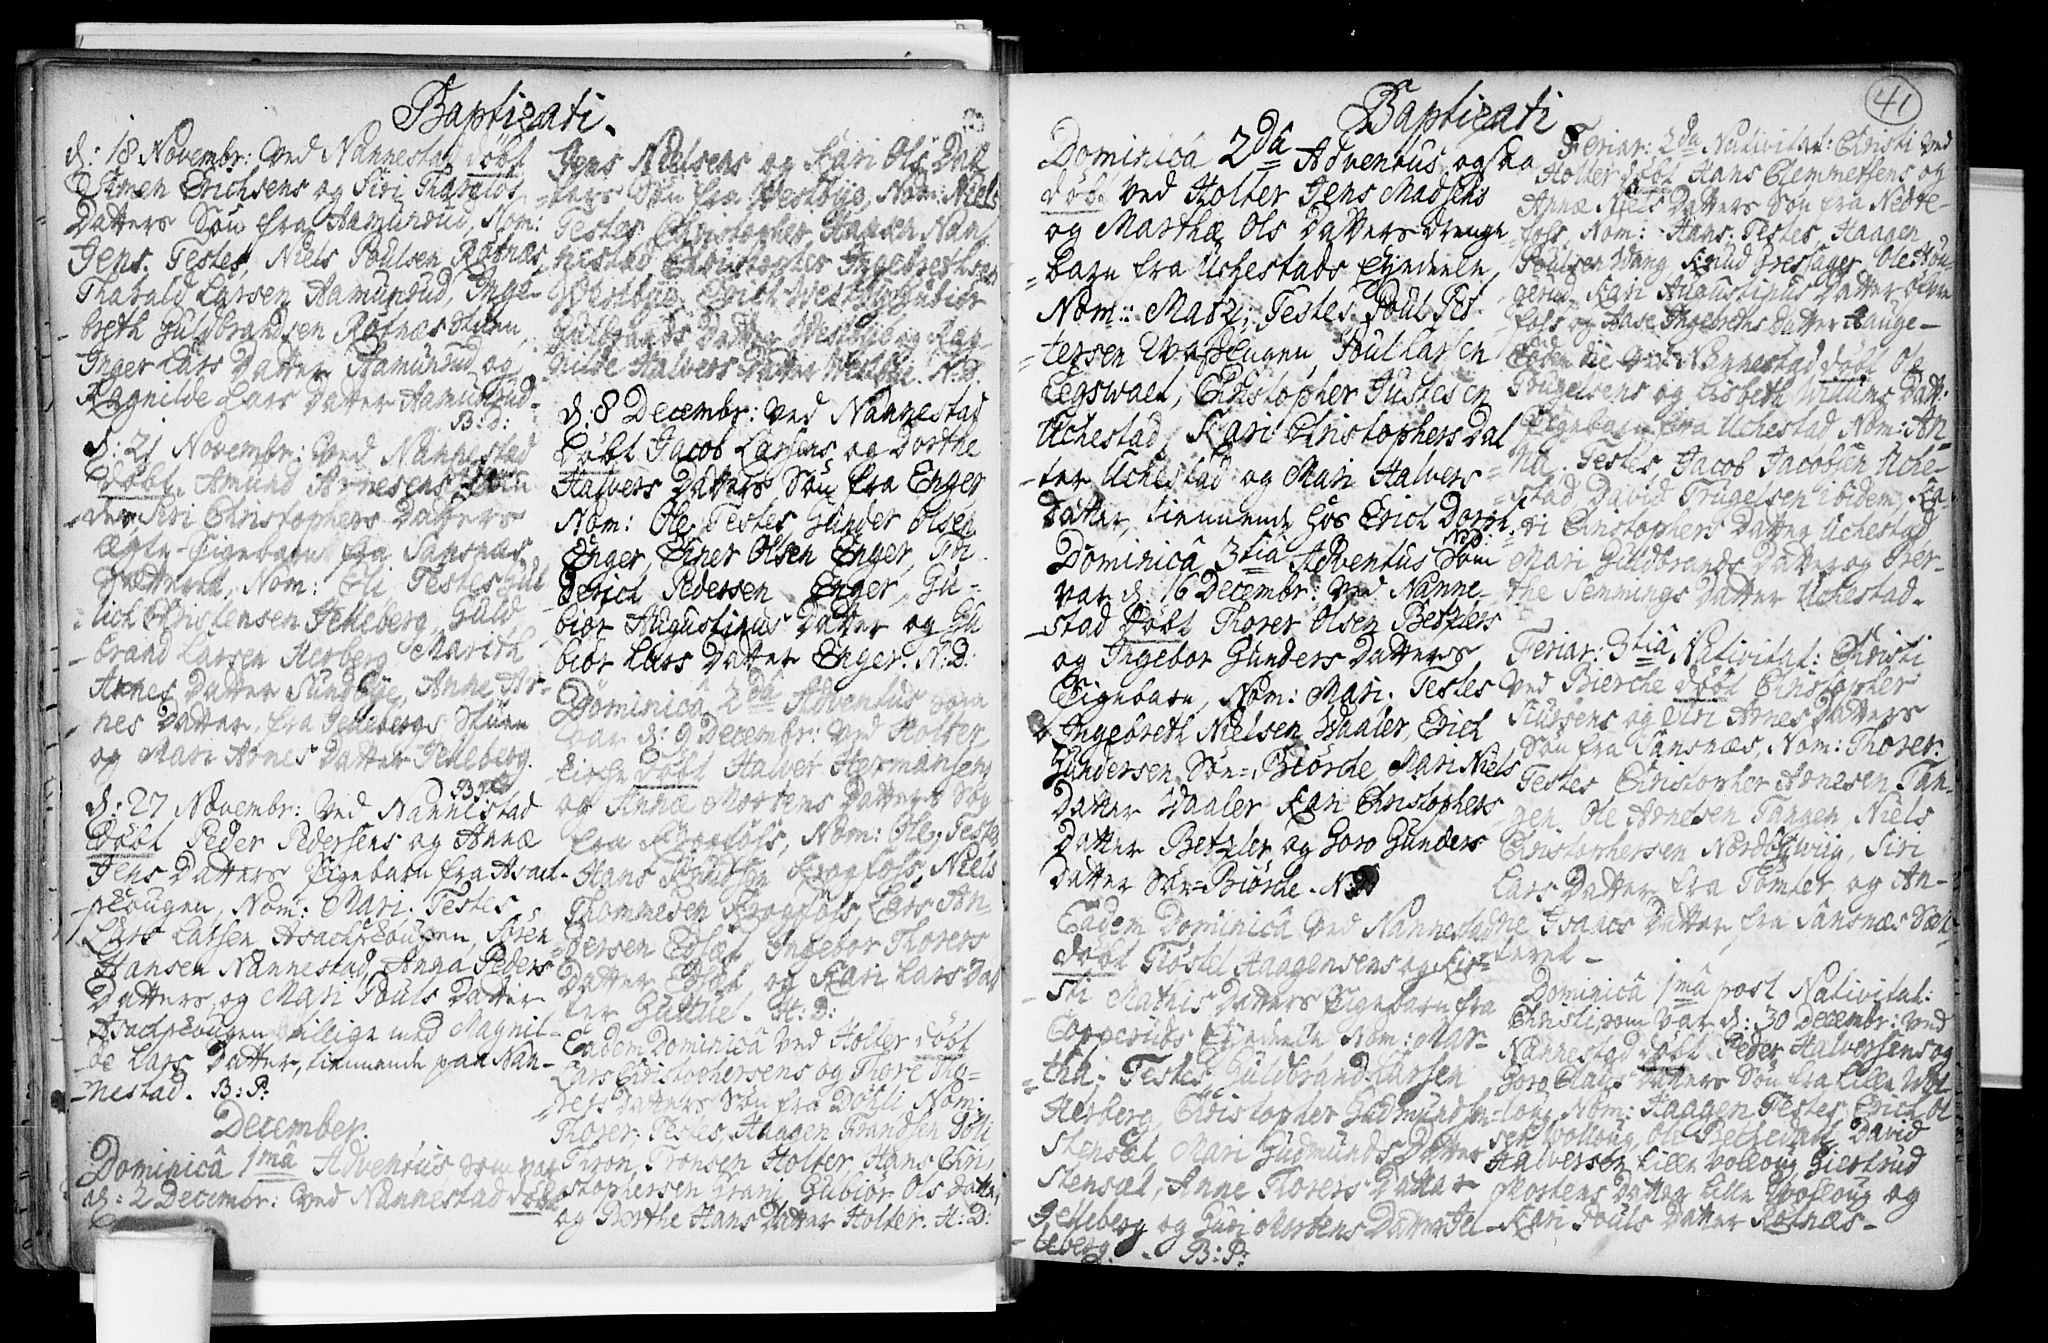 Baptizati.
d: 18 Novembr: ved Nannestad döbt
Simen Erichsens og Siri Tharalds
Datters Sön fra Aamundrud, Nom:
Jens. Testes, Niels Poulsen Rotnæs,
Tharald Larsen Aamundrud, Inge-
breth Guldbrandsen Rotnæs Stuen,
Inger Lars Datter Aamundrud og
Ragnilde Lars Datter Aamundrud.
B: D:
d: 21 Novembr: ved Nannestad
döbt. Amund Arnesens
Siri Christophers Datters
ægte Pigebarn fra Sansnæs
Nom: Testes
lich Christensen Jelleberg, Guld-
brand Larsen Herberg Marith
Arnes Datter Sundbye, Anne Ar-
nes Datter, fra Jellebergs Stuen
og Mari Arnes Datter Jelleberg.
d: 27 Novembr: ved Nannestad
döbt Peder Pedersens og Annæ
Jens Datters Pigebarn fra Asach-
skougen, Nom: Mari. Testes
Lars Larsen Asachskougen, Sören
Hansen Nannestad, Anna Peders
Datters, og Mari Pouls Datter
Asachskougen tillige med Magnil-
de Lars Datter, tienende paa Nan-
nestad. B: P:
December.
Dominicâ 1mâ Adventus, som var
d: 2 Decembr: ved Nannestad döbt
Jens Nielsens og Kari Ols Dat-
ters Sön fra Westbye, Nom: Niels
Testes, Christopher Hansen Nan-
nestad, Christopher Ingebrethsen
Westbye, Erich Westbye, Gubior
Guldbrands Datter Westbye og Rag-
nilde Halvers Datter Westbye. N: D:
d: 8 Decembr: ved Nannestad
döbt Jacob Larsens og Dorthe
Halvers Datters Sön fra Enger
Nom: Ole. Testes, Gunder Olsen
Enger, Einer Olsen Enger,
derich Pedersen Enger, Gu-
bior Augustinus Datter og Gu
bior Lars Datter Enger. N: D:
Dominicâ 2dâ Adventus som
var d: 9 Decembr: ved Holter
kirche döbt Halver Hermansens
og Annæ Mortens Datters Sön
fra Krogfoss, Nom: Ole, Testes
Hans Krogfoss, Niels
Thommesen Krogfoss, Lars An-
dersen Ingebor Thorers
Datter og Kari Lars Dat
ter H: D:
Eadem Dominicâ ved Holter döbt
Lars Christophersens og Thore Tho-
res Datters Sön fra Döhli Nom:
Thorer. Testes, Haagen Frandsen Döli
Tron Tronsen Holter, Hans Chri-
stophersen Grani, Gubior Ols Datter
og Berthe Hans Datter Holter. H: D:
41
Baptizati
Dominicâ 2dâ Adventus, ogsaa
döbt ved Holter Jens Madsens
og Marthæ Ols Datters Drenge-
barn fra Uchestads Eyendeele,
Nom:: Matz; Testes Poul Pet-
tersen Poul Larsen
Egswaet, Christopher Justesen
Uchestad, Kari Christophers Dat
ter Uchestad og Mari Halvers
Datter, tienende hos Erich
Dominicâ 3tiâ Adventus som
var d: 16 Decembr: ved Nanne-
stad döbt Thorer Olsen Betzlers
og Ingebor Gunders Datters
Pigebarn, Nom: Mari. Testes
Ingebreth Nielsen Waaler, Erich
Gundersen Sön-Biörche, Mari Niels
Datter Waaler, Kari Christophers
Datter Betzler og Goro Gunders
Datter Sön-Biörche. N:
Eadem Dominicâ ved Nannestad
döbt Tiöstel Haagensens og Kir-
sti Mathis Datters Pigebarn fra
Eyendeele Nom: Mar-
tha. Testes, Guldbrand Larsen
Herberg, Christopher Gudmundsen
Stensæt Mari Gudmunds Datter
Stensæt, Anne Thorers Datter
Jelleberg og Guri Mortens Datter Jel-
leberg. B: P:
Feriar: 2dâ Nativitat: Christi ved
Holter döbt Hans Clemmetsens og
Annæ Niels Datters Sön fra Nedre-
foss, Nom: Hans. Testes, Haagen
Poulsen Wang, Knud Ole Hou-
gerud, Kari Augustinus Datter öfre
foss og Aase Ingebreths Datter Hauge-
Eodem die ved Nannestad döbt Ole
Trugelsens og Lisbeth Willums Datt:
Pigebarn fra Uchestad Nom: An-
na. Testes, Jacob Jacobsen Uche-
stad David Trugelsen ibidem, Ka-
ri Christophers Datter Uchestad
Mari Guldbrands Datter og Ber-
the Jennings Datter Uchestad.
Feriar: 3tiâ Nativitat: Christi
ved Bierche döbt Christopher
Siursens og Siri Arnes Datters
Sön fra Sansnæs, Nom: Thorer.
Testes Christopher Arnesen Tan-
gen, Ole Arnesen Tangen, Niels
Christophersen Siri
Lars Datter fra Tomter, og An-
ne Isaacs Datter, fra Sansnæs Sæt-
teret-
Dominicâ 1mâ post Nativitat:
Christi, som var d: 30 Decembr: ved
Nannestad döbt Peder Halversens og
Goro Datters Sön fra Lille Wol-
loug, Nom: Haagen, Testes Erich Ol-
sen Wolloug, Ole Bethedal, David
Halversen Lille Wolloug Giertrud
Mortens Datter Lille Wolloug og
Kari Pouls Datter Rotnæs-